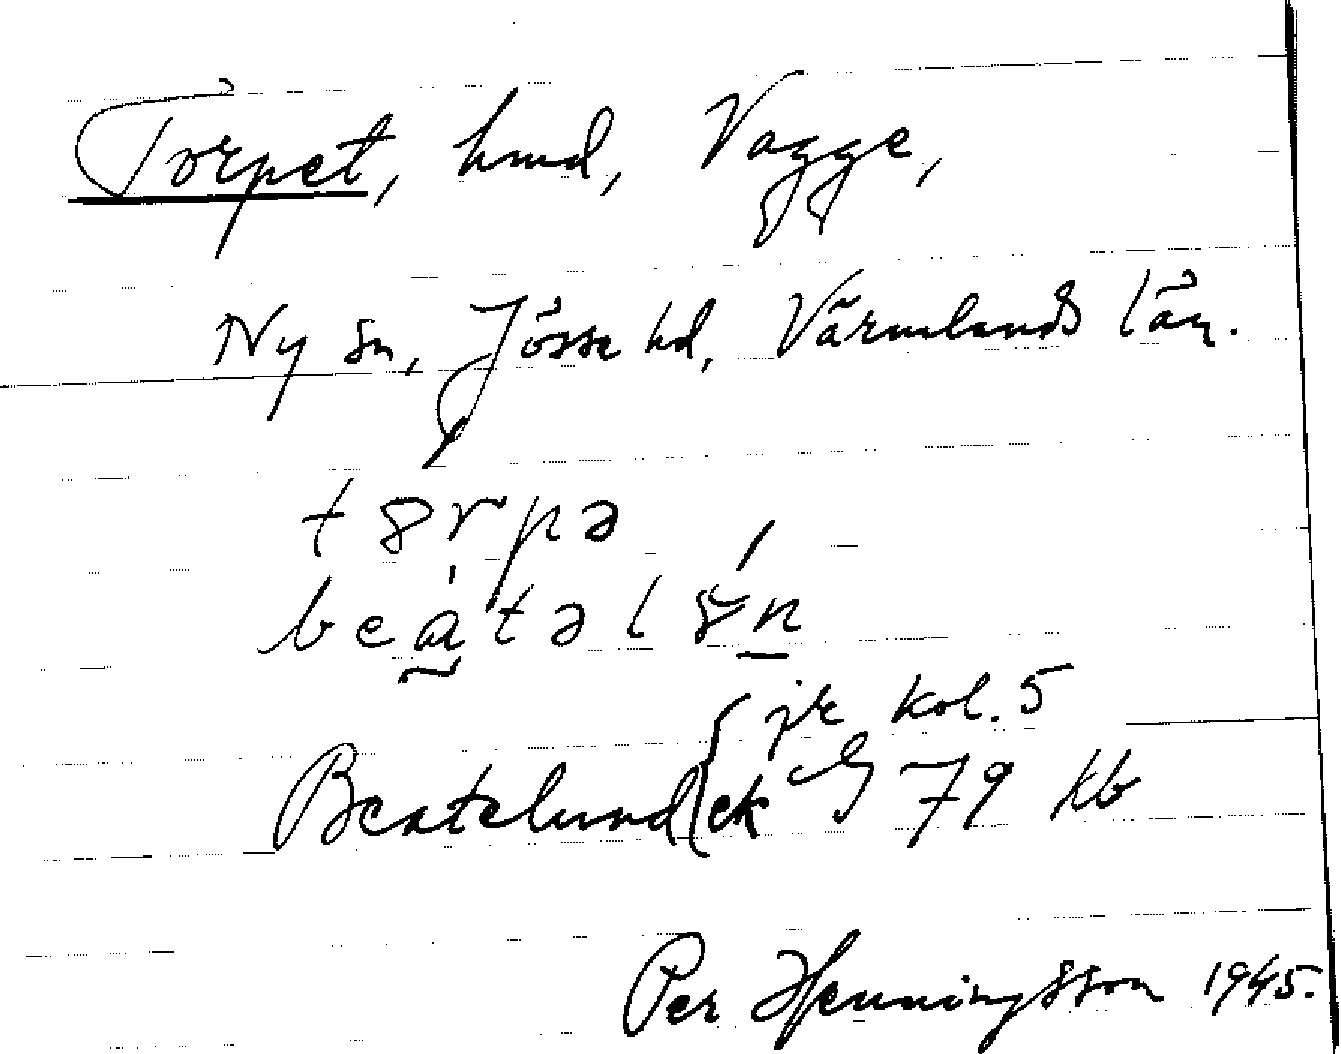 Torpet, hmd, Vagge,
Ny sn, Jösse hd, Värmlands län.
tȣrpə
beatəlȣn
jfr kol. 5
Beatelund (ek 79 kb
Per Henningsson 1945.